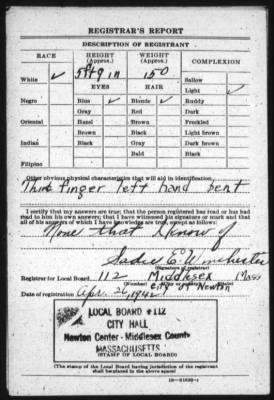 REGISTRAR'S REPORT
DESCRIPTION OF REGISTRANT
RACE HEIGHT (Approx.) WEIGHT (Approx.) COMPLEXION
White ✓ 5ft 9 in 150 Sallow
EYES HAIR Light ✓
Negro Blue ✓ Blonde ✓ Ruddy
Gray Red Dark
Oriental Hazel Brown Freckled
Brown Black Light brown
Indian Black Gray Dark brown
Bald Black
Filipino
Other obvious physical characteristics that will aid in identification
Third finger left hand bent
I certify that my answers are true; that the person registered has read or has had
read to him his own answers; that I have witnessed his signature or mark and that
all of his answers of which I have knowledge are true, except as follows:
None that I know of
Sadie E. Winchester
(Signature of registrar)
Registrar for Local Board 112 Middlesex Mass
(Number) (City or county)
City of Newton
Date of registration Apr. 26, 1942
LOCAL BOARD #112
CITY HALL
Newton Center - Middlesex County
MASSACHUSETTS
(STAMP OF LOCAL BOARD)
(The stamp of the Local Board having jurisdiction of the registrant
shall be placed in the above space)